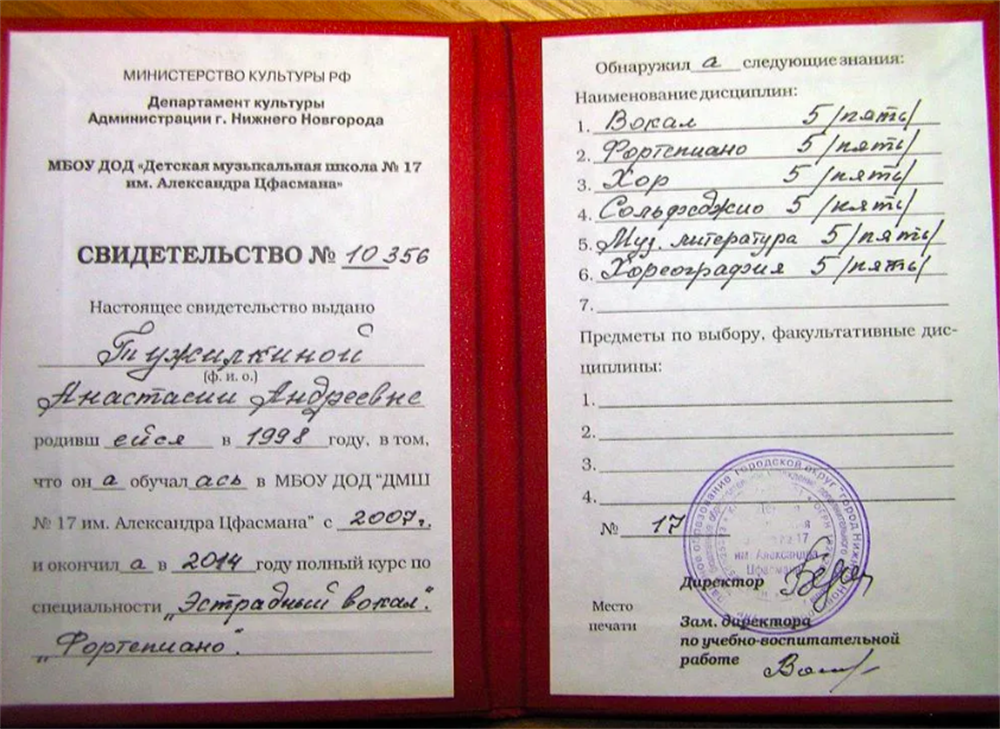 МИНИСТЕРСТВО КУЛЬТУРЫ РФ
Департамент культуры
Администрации г. Нижнего Новгорода
МБОУ ДОД «Детская музыкальная школа № 17
им. Александра Цфасмана»
СВИДЕТЕЛЬСТВО № 10356
Настоящее свидетельство выдано
Тужилкиной
(ф. и. о.)
Анастасии Андреевне
родивш ейся в 1998 году, в том,
что он а обучал ась в МБОУ ДОД "ДМШ
№ 17 им. Александра Цфасмана" с 2007г.
и окончил а в 2014 году полный курс по
специальности „Эстрадный вокал".
„Фортепиано".
Обнаружил а следующие знания:
Наименование дисциплин:
1. Вокал 5 /пять/
2. Фортепиано 5 /пять/
3. Хор 5 /пять/
4. Сольфеджио 5 /пять/
5. Муз. литература 5 /пять/
6. Хореография 5 /пять/
7.
Предметы по выбору, факультативные дис-
циплины:
1.
2.
3.
4.
№ 17
городской округ "город Нижний
им. Александра
Цфасмана
Директор
Место
печати
Зам. директора
по учебно-воспитательной
работе